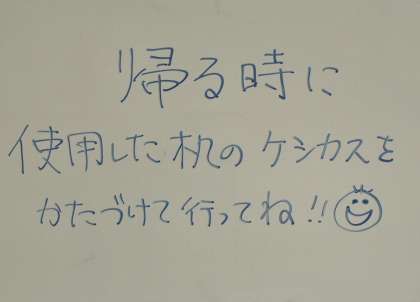 帰る時に
使用した机のケシカスを
かたづけて行ってね!!